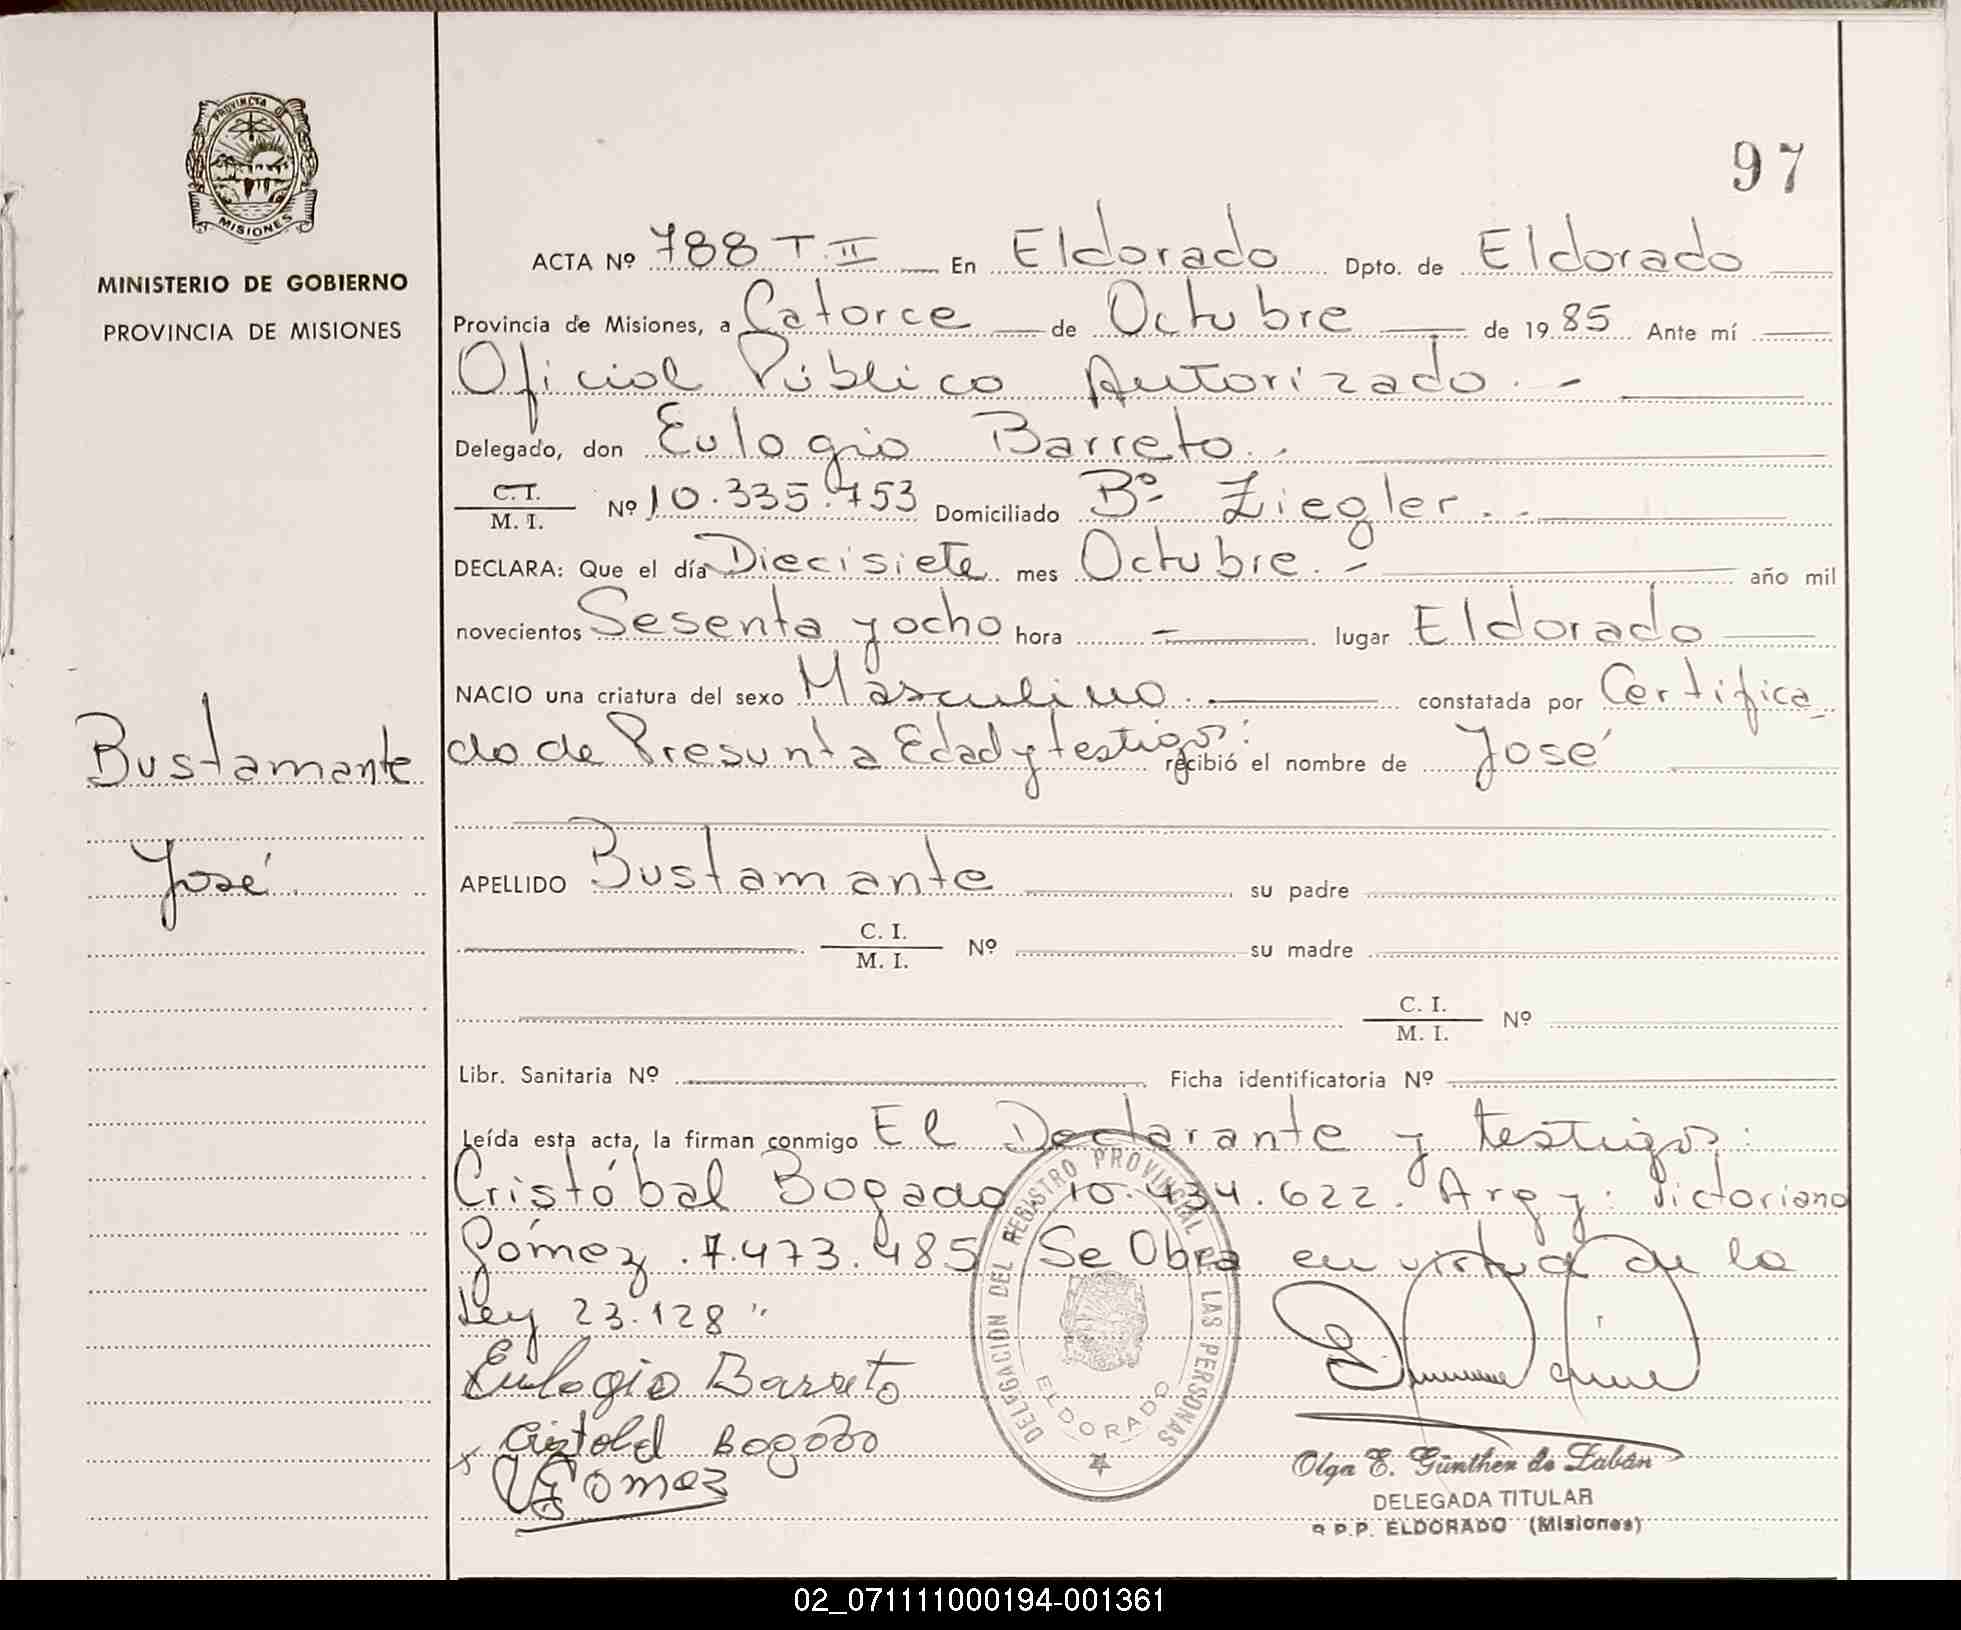 PROVINCIA DE
MISIONES
MINISTERIO DE GOBIERNO
PROVINCIA DE MISIONES
Bustamante
José
97
ACTA Nº 788 T. II En Eldorado Dpto. de Eldorado
Provincia de Misiones, a Catorce de Octubre de 1985 Ante mí
Oficial Público Autorizado. -
Delegado, don Eulogio Barreto. -
C. I. / M. I. Nº 10.335.753 Domiciliado Bº Ziegler. -
DECLARA: Que el día Diecisiete mes Octubre. - año mil
novecientos Sesenta y ocho hora - lugar Eldorado
NACIO una criatura del sexo Masculino. constatada por Certifica_
do de Presunta Edad y testigos: recibió el nombre de José
APELLIDO Bustamante su padre
C. I. / M. I. Nº su madre
C. I. / M. I. Nº
Libr. Sanitaria Nº Ficha identificatoria Nº
Leída esta acta, la firman conmigo El Declarante y testigos:
Cristóbal Bogado 10.434.622. Arg y: Victoriano
Gómez. 7.473.485 Se Obra en virtud de la
Ley 23.128"
Eulogio Barreto
Bogado
Gomez
DELEGACION DEL REGISTRO PROVINCIAL DE LAS PERSONAS
ELDORADO
Olga E. Günther de Labán
DELEGADA TITULAR
R.P.P. ELDORADO (Misiones)
02_071111000194-001361